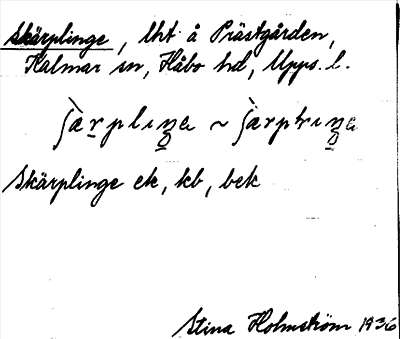 Skärplinge, lht å Prästgården,
Kalmar sn, Håbo hd, Upps. l.
Skärplinge ek, kb, bek
Stina Holmström 1936